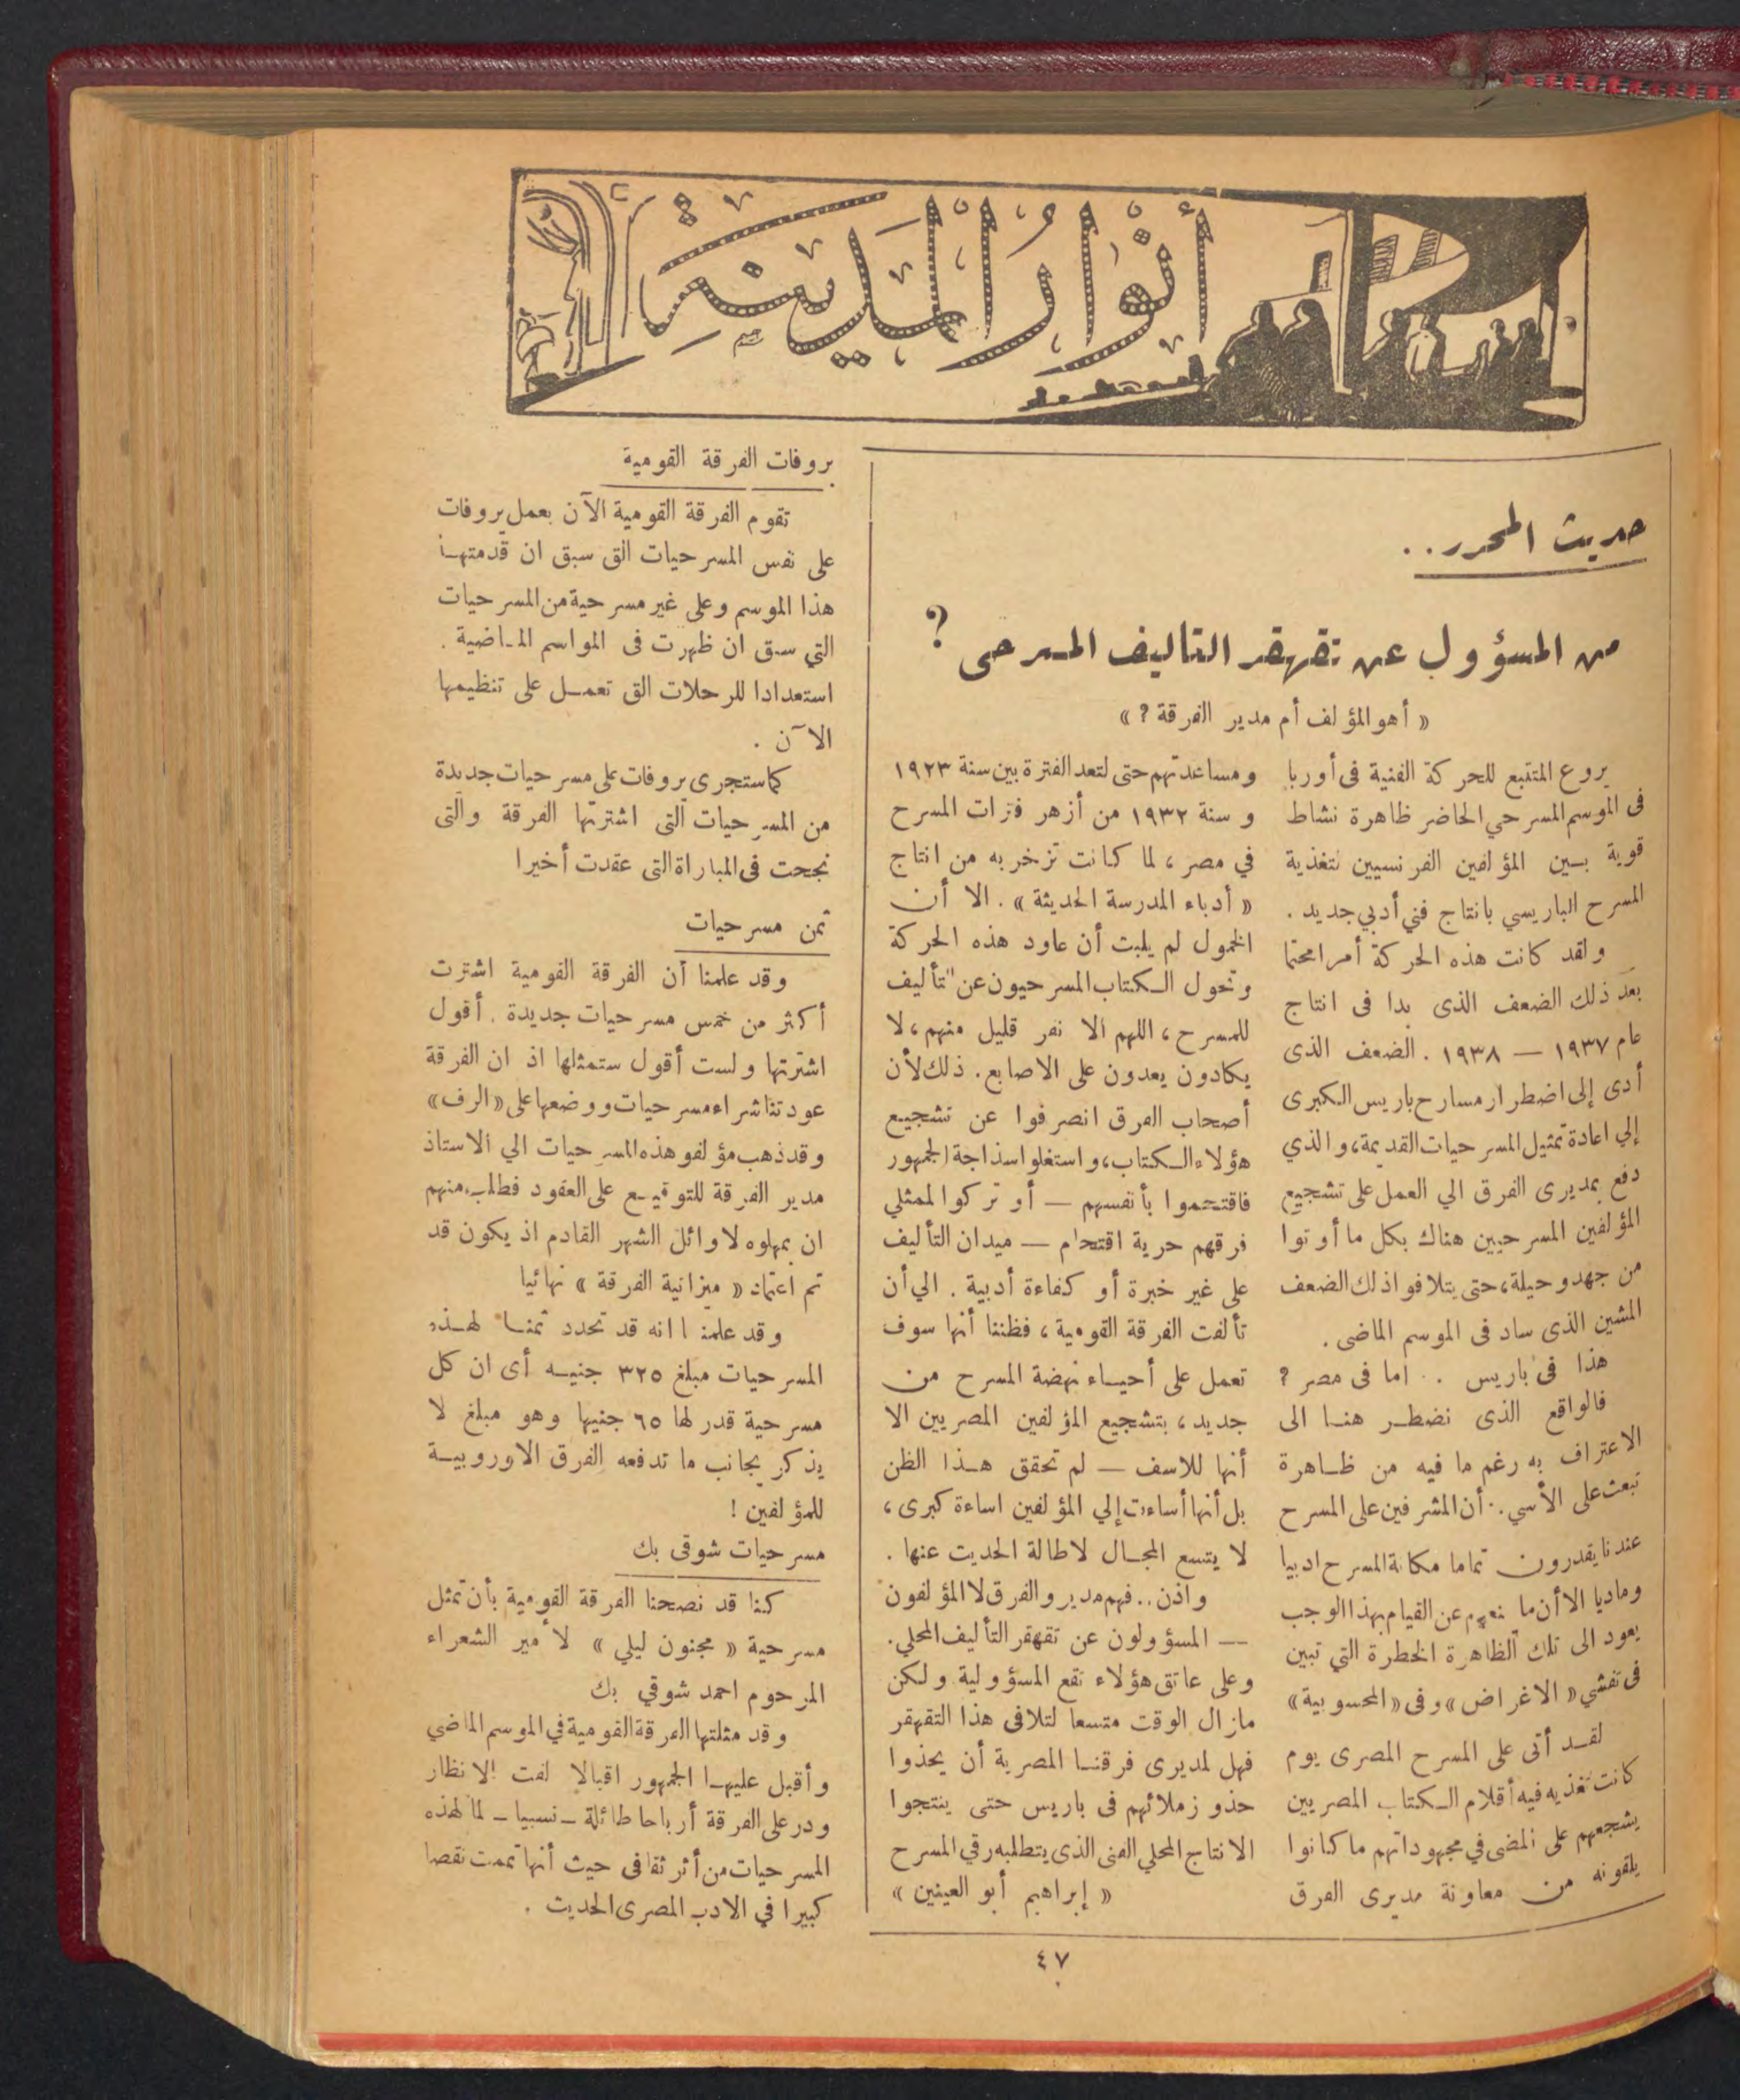 أنوار المدينة
حديث المحرر..
من المسؤول عن تقهقر التاليف المسرحى ؟
« أهو المؤلف أم مدير الفرقة ؟ »
يروع المتتبع للحركة الفنية فى أوربا
فى الموسم المسرحي الحاضر ظاهرة نشاط
قوية بين المؤلفين الفرنسيين لتغذية
المسرح الباريسي بانتاج فني أدبي جديد .
ولقد كانت هذه الحركة أمرا محتما
بعد ذلك الضعف الذى بدا فى انتاج
عام ١٩٣٧ — ١٩٣٨ . الضعف الذى
أدى إلى اضطرار مسارح باريس الكبرى
إلي اعادة تمثيل المسرحيات القديمة، والذي
دفع بمديرى الفرق الي العمل على تشجيع
المؤلفين المسرحيين هناك بكل ما أوتوا
من جهد وحيلة، حتى يتلافوا ذلك الضعف
المشين الذى ساد فى الموسم الماضى .
هذا فى باريس .. اما فى مصر ؟
فالواقع الذى نضطر هنا الى
الاعتراف به رغم ما فيه من ظاهرة
تبعث على الأسي .. أن المشرفين على المسرح
عندنا يقدرون تماما مكانة المسرح ادبيا
وماديا الا أن ما يمنعهم عن القيام بهذا الوجب
يعود الى تلك الظاهرة الخطرة التي تبين
فى تفشي « الاغراض » وفى « المحسوبية »
لقد أتى على المسرح المصرى يوم
كانت تغذيه فيه أقلام الكتاب المصريين
يشجعهم على المضى في مجهوداتهم ما كانوا
يلقونه من معاونة مديرى الفرق
ومساعدتهم حتى لتعد الفترة بين سنة ١٩٢٣
و سنة ١٩٣٢ من أزهر فترات المسرح
في مصر ، لما كانت تزخر به من انتاج
« أدباء المدرسة الحديثة » . الا أن
الخمول لم يلبث أن عاود هذه الحركة
وتحول الكتاب المسرحيون عن التأليف
للمسرح ، اللهم الا نفر قليل منهم ، لا
يكادون يعدون على الاصابع . ذلك لأن
أصحاب الفرق انصرفوا عن تشجيع
هؤلاء الكتاب، واستغلوا سذاجة الجمهور
فاقتحموا بأنفسهم — أو تركوا لممثلي
فرقهم حرية اقتحام — ميدان التأليف
على غير خبرة أو كفاءة أدبية . الي أن
تألفت الفرقة القومية ، فظننا أنها سوف
تعمل على أحياء نهضة المسرح من
جديد ، بتشجيع المؤلفين المصريين الا
أنها للاسف — لم تحقق هذا الظن
بل أنها أساءت إلي المؤلفين اساءة كبرى ،
لا يتسع المجال لاطالة الحديث عنها .
واذن .. فهم مديرو الفرق لا المؤلفون
— المسؤولون عن تقهقر التأليف المحلي.
وعلى عاتق هؤلاء تقع المسؤولية ولكن
مازال الوقت متسعا لتلافى هذا التقهقر
فهل لمديرى فرقنا المصرية أن يحذوا
حذو زملائهم فى باريس حتى ينتجوا
الانتاج المحلي الفنى الذى يتطلبه رقي المسرح
« إبراهيم أبو العينين »
بروفات الفرقة القومية
تقوم الفرقة القومية الآن بعمل بروفات
على نفس المسرحيات التى سبق ان قدمتها
هذا الموسم وعلى غير مسرحية من المسرحيات
التي سبق ان ظهرت فى المواسم الماضية .
استعدادا للرحلات التى تعمل على تنظيمها
الآن .
كما ستجرى بروفات على مسرحيات جديدة
من المسرحيات التى اشترتها الفرقة والتى
نجحت فى المباراة التى عقدت أخيرا
ثمن مسرحيات
وقد علمنا أن الفرقة القومية اشترت
أكثر من خمس مسرحيات جديدة . أقول
اشترتها ولست أقول ستمثلها اذ ان الفرقة
عودتنا شراء مسرحيات ووضعها على « الرف »
وقد ذهب مؤلفو هذه المسرحيات الي الاستاذ
مدير الفرقة للتوقيع على العقود فطلب منهم
ان يمهلوه لاوائل الشهر القادم اذ يكون قد
تم اعتماد « ميزانية الفرقة » نهائيا
وقد علمنا انه قد تحدد ثمنا لهذه
المسرحيات مبلغ ٣٢٥ جنيه أى ان كل
مسرحية قدر لها ٦٥ جنيها وهو مبلغ لا
يذكر بجانب ما تدفعه الفرق الاوروبية
للمؤلفين !
مسرحيات شوقى بك
كنا قد نصحنا الفرقة القومية بأن تمثل
مسرحية « مجنون ليلي » لأمير الشعراء
المرحوم احمد شوقي بك
وقد مثلتها الفرقة القومية في الموسم الماضي
وأقبل عليها الجمهور اقبالا لفت الانظار
ودر على الفرقة أرباحا طائلة – نسبيا – لما لهذه
المسرحيات من أثر ثقافى حيث أنها تممت نقصا
كبيرا في الادب المصرى الحديث .
٤٧